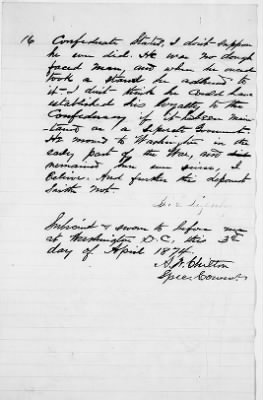 16 Confederate States. I don't suppose
he ever did. He was no dough
faced man, and when he once
took a stand he adhered to
it. I don't think he could have
established his loyalty to the
Confederacy if it had been main-
tained as a Separate Government.
He moved to Washington in the
early part of the War, and
remained there ever since, I
believe. And further this deponent
Saith not.
Subscribed & sworn to before me
at Washington D.C. this 3d
day of April 1874.
Spec. Commr.